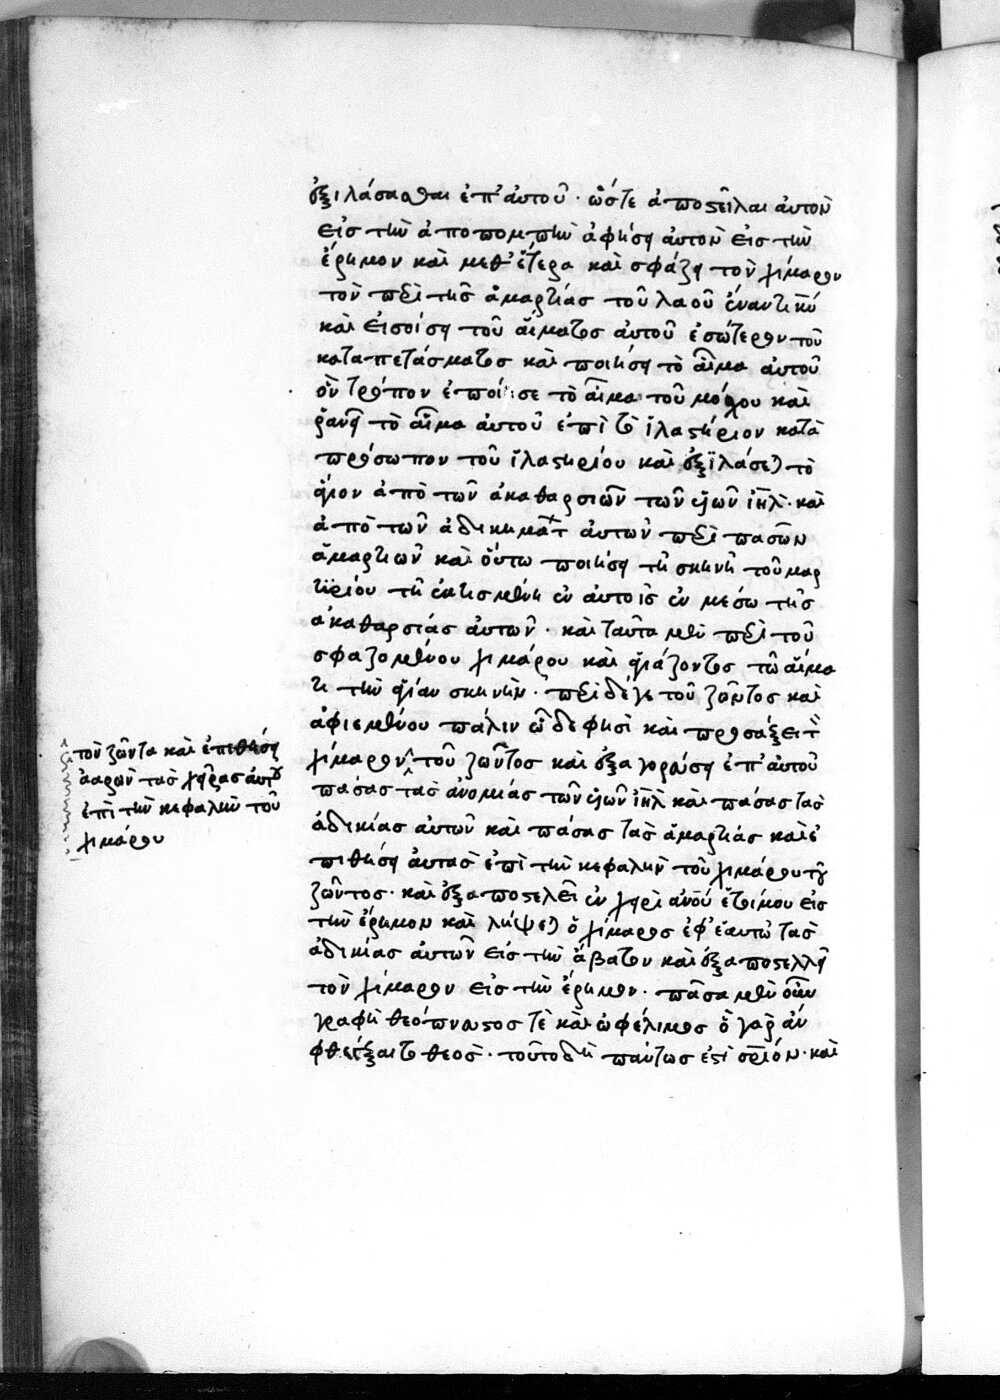 ἐξιλάσασθαι ἐπ' αὐτοῦ· ὥστε ἀποστεῖλαι αὐτὸν
εἰς τὴν ἀποπομπὴν ἀφήσῃ αὐτὸν εἰς τὴν
ἔρημον καὶ μεθ' ἕτερα καὶ σφάξῃ τὸν χίμαρον
τὸν περὶ τῆς ἁμαρτίας τοῦ λαοῦ ἔναντι κυ
καὶ εἰσοίσῃ τοῦ αἵματος αὐτοῦ ἐσώτερον τοῦ
καταπετάσματος καὶ ποιήσῃ τὸ αἷμα αὐτοῦ
ὃν τρόπον ἐποίησε τὸ αἷμα τοῦ μόσχου καὶ
ῥανεῖ τὸ αἷμα αὐτοῦ ἐπὶ τὸ ἱλαστήριον κατὰ
πρόσωπον τοῦ ἱλαστηρίου καὶ ἐξιλάσεται τὸ
ἅγιον ἀπὸ τῶν ἀκαθαρσιῶν τῶν υἱῶν ιηλ· καὶ
ἀπὸ τῶν ἀδικημάτων αὐτῶν περὶ πασῶν
ἁμαρτιῶν καὶ οὕτω ποιήσῃ τῇ σκηνῇ τοῦ μαρ
τυρίου τῇ ἐκτισμένῃ ἐν αὐτοῖς ἐν μέσω τῆς
ἀκαθαρσίας αὐτῶν· καὶ ταῦτα μὲν περὶ τοῦ
σφαζομένου χιμάρου καὶ ἁγιάζοντος τῶ αἵμα
τι τὴν ἁγίαν σκηνήν· περὶ δέ γε τοῦ ζῶντος καὶ
ἀφιεμένου πάλιν ὧδε φησὶ καὶ προσάξει τὸν
χίμαρον τοῦ ζῶντος καὶ ἐξαγορεύσῃ ἐπ' αὐτοῦ
πάσας τὰς ἀνομίας τῶν υἱῶν ιηλ καὶ πάσας τὰς
ἀδικίας αὐτῶν καὶ πάσας τὰς ἁμαρτίας καὶ ἐ
πιθήσῃ αὐτὰς ἐπὶ τὴν κεφαλὴν τοῦ χιμάρου τοῦ
ζῶντος· καὶ ἐξαποστελεῖ ἐν χειρὶ ανου ἑτοίμου εἰς
τὴν ἔρημον καὶ λήψεται ὁ χίμαρος ἐφ' ἑαυτῶ τὰς
ἀδικίας αὐτῶν εἰς τὴν ἄβατον καὶ ἐξαποστελλεῖ
τὸν χίμαρον εἰς τὴν ἔρημον· πᾶσα μὲν οὖν
γραφὴ θεόπνευστος τὲ καὶ ὠφέλιμος ὃ γὰρ ἂν
φθέγξαιτο θεὸς· τοῦτο δὴ πάντως ἐστὶ σωτήριον· καὶ
τὸν ζῶντα καὶ ἐπιθήσῃ
ἀαρὼν τὰς χεῖρας αὐτοῦ
ἐπὶ τὴν κεφαλὴν τοῦ
χιμάρου